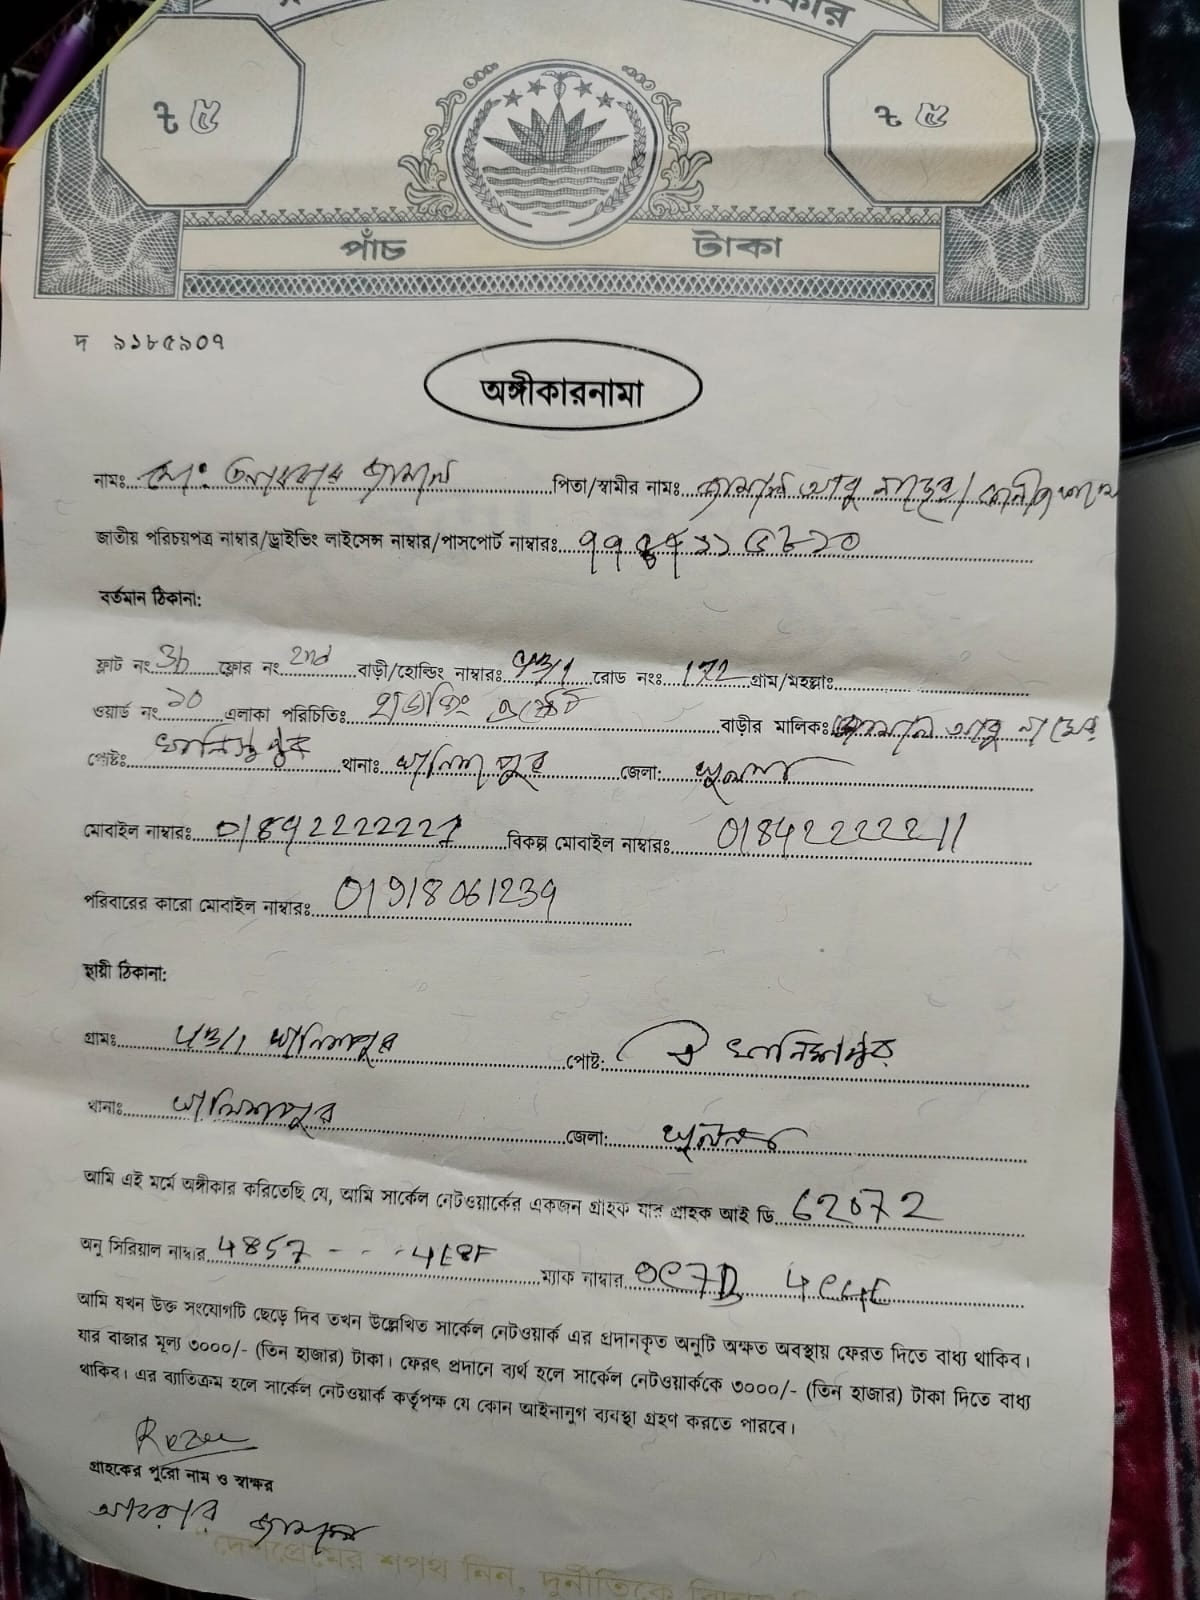 ৳ ৫ ৳ ৫
পাঁচ টাকা
দ ৯১৮৫৯০৭
অঙ্গীকারনামা
নামঃ মোঃ জামাল পিতা/স্বামীর নামঃ জামাল আবু নাছের/
জাতীয় পরিচয়পত্র নাম্বার/ড্রাইভিং লাইসেন্স নাম্বার/পাসপোর্ট নাম্বারঃ
বর্তমান ঠিকানা:
ফ্লাট নং 3b ফ্লোর নং 2nd বাড়ী/হোল্ডিং নাম্বারঃ রোড নংঃ 172 গ্রাম/মহল্লাঃ
ওয়ার্ড নং ১০ এলাকা পরিচিতিঃ হাউজিং এস্টেট বাড়ীর মালিকঃ জামাল আবু নাছের
পোষ্টঃ খালিশপুর থানাঃ খালিশপুর জেলা: খুলনা
মোবাইল নাম্বারঃ বিকল্প মোবাইল নাম্বারঃ 01842222211
পরিবারের কারো মোবাইল নাম্বারঃ 01918061239
স্থায়ী ঠিকানা:
গ্রামঃ খালিশপুর পোষ্ট: খালিশপুর
থানাঃ খালিশপুর জেলা: খুলনা
আমি এই মর্মে অঙ্গীকার করিতেছি যে, আমি সার্কেল নেটওয়ার্কের একজন গ্রাহক যার গ্রাহক আই ডি 62072
অনু সিরিয়াল নাম্বার 4857 - - - 4E8F ম্যাক নাম্বার
আমি যখন উক্ত সংযোগটি ছেড়ে দিব তখন উল্লেখিত সার্কেল নেটওয়ার্ক এর প্রদানকৃত অনুটি অক্ষত অবস্থায় ফেরত দিতে বাধ্য থাকিব।
যার বাজার মূল্য ৩০০০/- (তিন হাজার) টাকা। ফেরৎ প্রদানে ব্যর্থ হলে সার্কেল নেটওয়ার্ককে ৩০০০/- (তিন হাজার) টাকা দিতে বাধ্য
থাকিব। এর ব্যতিক্রম হলে সার্কেল নেটওয়ার্ক কর্তৃপক্ষ যে কোন আইনানুগ ব্যবস্থা গ্রহণ করতে পারবে।
গ্রাহকের পুরো নাম ও স্বাক্ষর
আবরার জামাল
"দেশপ্রেমের শপথ নিন, দুর্নীতিকে